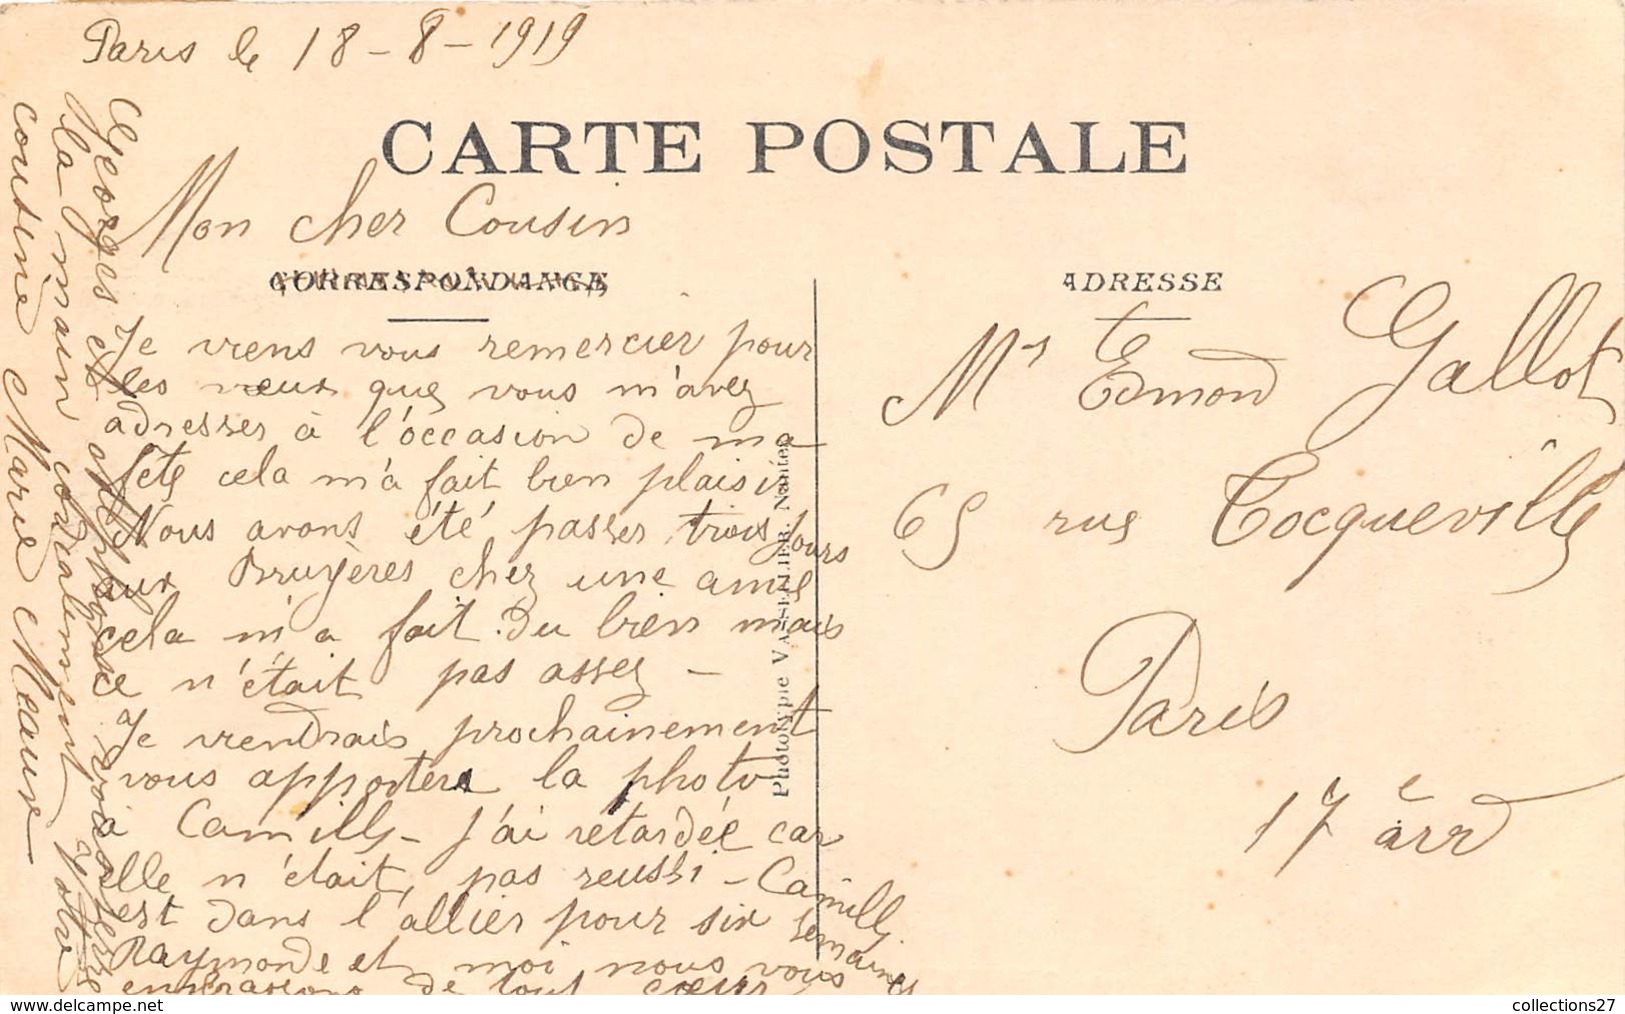 Paris le 18-8-1919
CARTE POSTALE
Mon cher Cousin
CORRESPONDANCE
Je viens vous remercier pour
les vœux que vous m'avez
adresser à l'occasion de ma
fête cela m'a fait bien plaisir
Nous avons été passer trois jours
aux Bruyères chez une amie
cela m'a fait du bien mais
ce n'était pas assez -
Je viendrais prochainement
vous apporter la photo
Camille - j'ai retardée car
elle n'était pas reussi - Camille
est dans l'allier pour six semaines
Raymonde et moi nous vous
embrassons de tout cœur
Georges et vous serre
la main cordialement Votre
cousine Marie Meaune
Phototypie VASSELLIER, Nantes
ADRESSE
Mr Edmond Gallot
65 rue Tocqueville
Paris
17e arrd
collections27